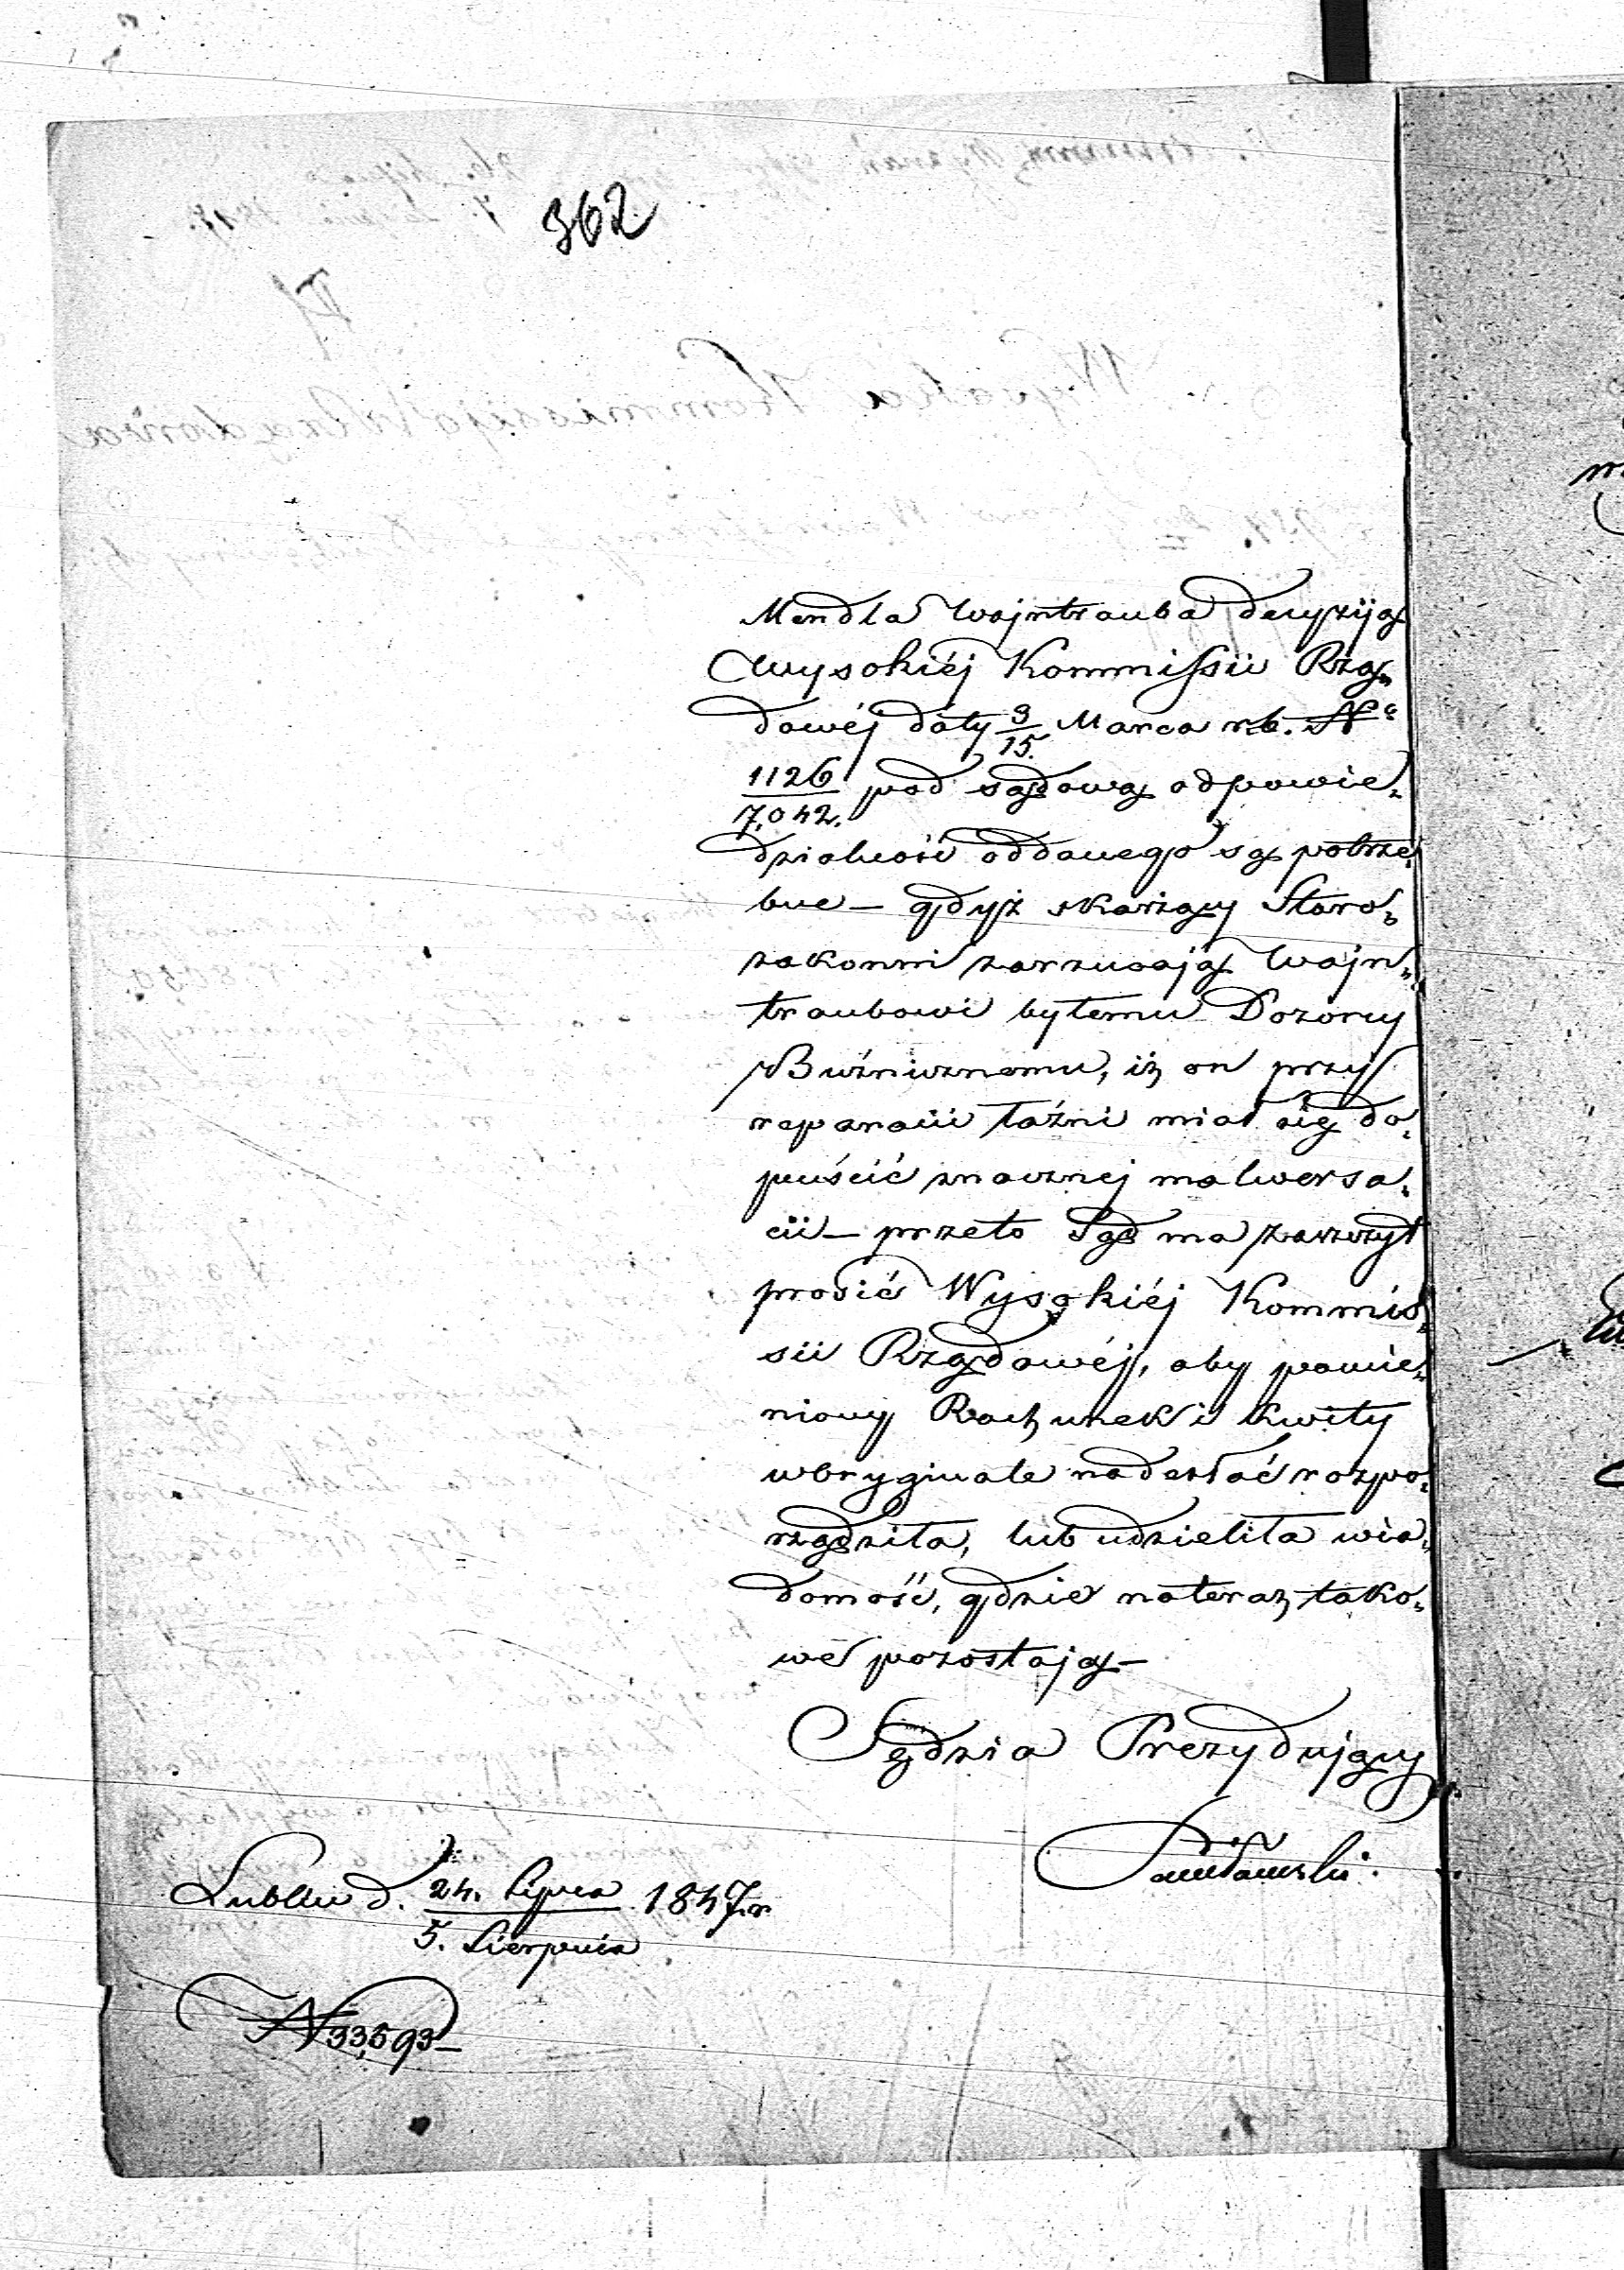 362
Mendla Wajntrauba decyzyją
Wysokiéj Kommissii Rzą„
dowéj daty 3/15. Marca r.b. No
1126/7,042. pod sądową odpowie„
dzialność oddanego są potrze„
bne – gdyż skarżący Staro„
zakonni zarzucają Wajn„
traubowi byłemu Dozorcy
Bużnicznemu, iż on przy
reparacii łaźni miał się do„
puścić znacznej malwersa„
cii – przeto Sąd ma zaszczyt
prosić Wysokiéj Kommis„
sii Rządowéj, aby pomie„
niony Rachunek i kwity
w oryginale nadesłać rozpo„
rządziła, lub udzieliła wia„
domość, gdzie nateraz tako„
we pozostają –
Sędzia Prezydujący
Lublin d. 24. Lipca/5. Sierpnia 1847 r.
N 33,593 –